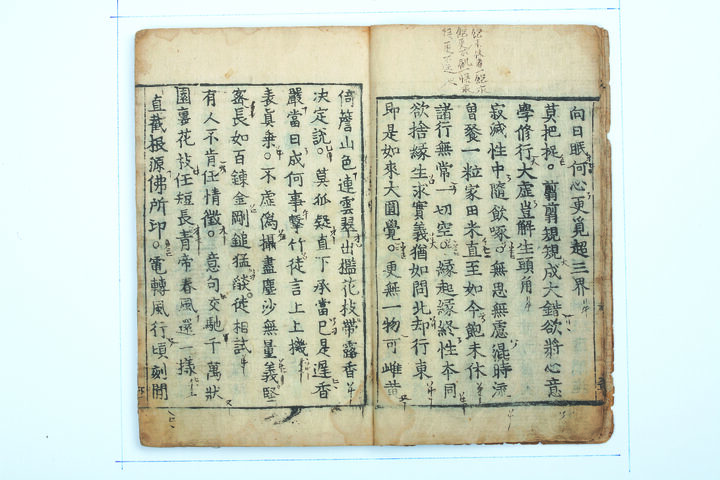 向日眠何心更覓超三界
莫把捉。剪剪規規成大錯欲將心意
學修行大虛豈解生頭角
寂滅性中隨飮啄。無思無慮混時流
曾餐一粒家田米直至如今飽未休
諸行無常一切空。緣起緣終性本同
欲捨緣生求實義猶如問北却行東
即是如來大圓覺。更無一物可雌黃
倚簷山色連雲翠出檻花枝帶露香
決定說。莫狐疑直下承當已是遲香
嚴當日成何事擊竹徒言上上機
表眞乘。不虛僞攝盡塵沙無量義堅
密長如百鍊金剛鎚猛燄徒相試
有人不肯任情徵。意句交馳千萬狀
園裏花枝任短長青帝春風還一樣
直截根源佛所印。電轉風行頃刻間